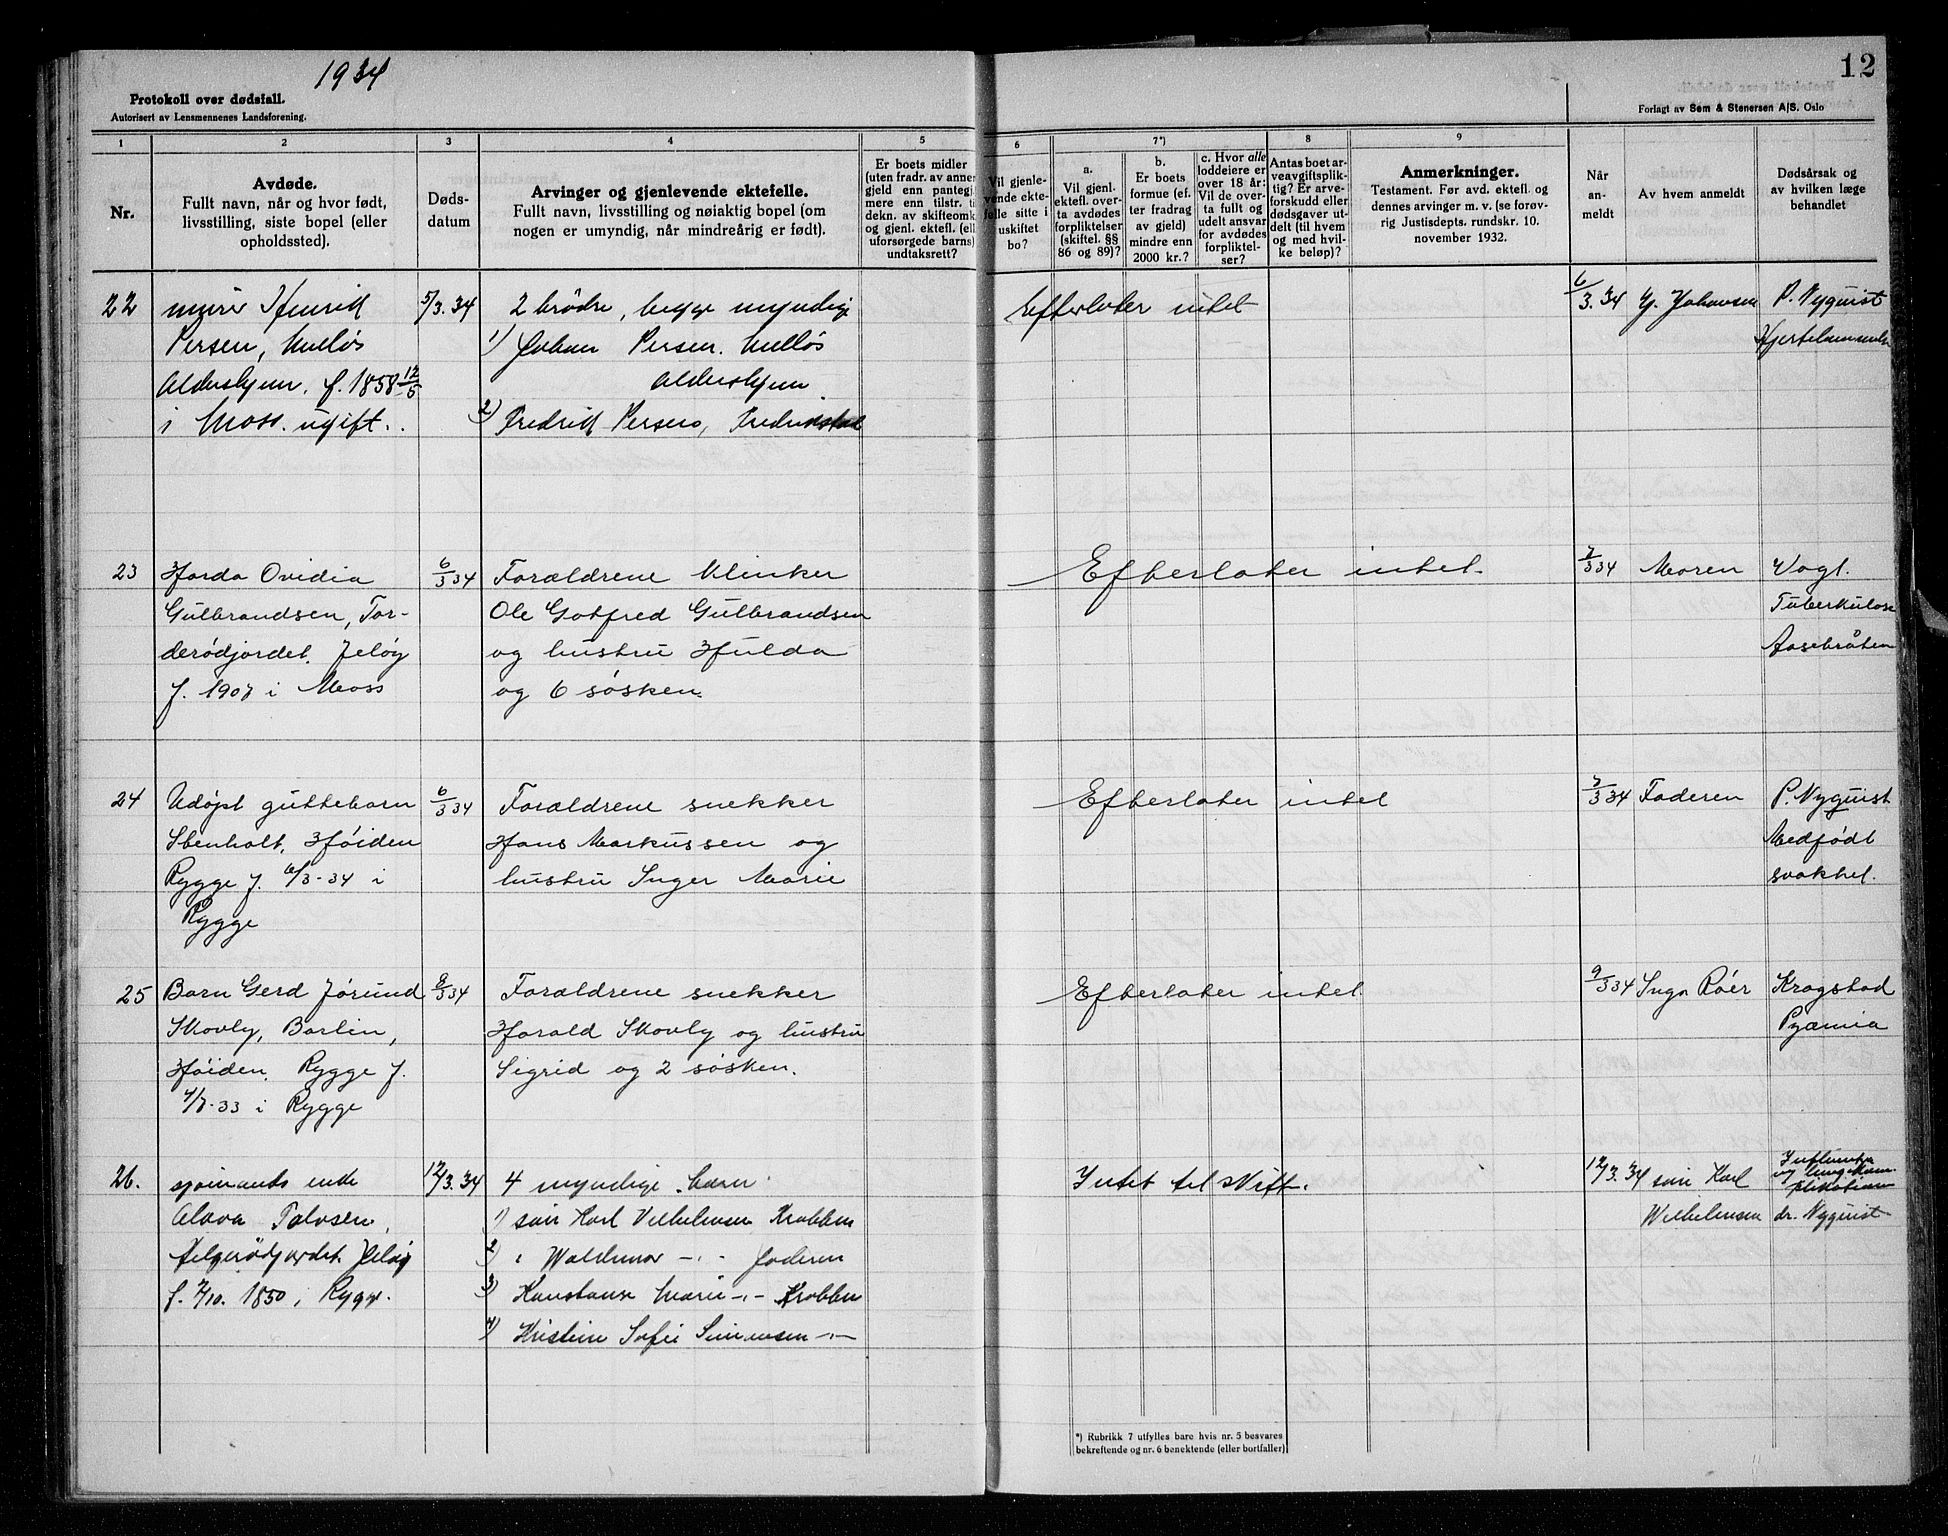 1934
12
Protokoll over dødsfall.
Autorisert av Lensmennenes Landsforening.
Forlagt av Sem & Stenersen A/S. Oslo
1
2
3
4
5
6
7*)
8
9
Nr.
Avdøde.
Fullt navn, når og hvor født,
livsstilling, siste bopel (eller
opholdssted).
Døds-
datum
Arvinger og gjenlevende ektefelle.
Fullt navn, livsstilling og nøiaktig bopel (om
nogen er umyndig, når mindreårig er født).
Er boets midler
(uten fradr. av annen
gjeld enn pantegj.)
mere enn tilstr. til
dekn. av skifteomk.
og gjenl. ektef. (ell.
uforsørgede barns)
undtaksrett?
Vil gjenle-
vende ekte-
felle sitte i
uskiftet
bo?
a.
Vil gjenl.
ektefl. over-
ta avdødes
forpliktelser
(skiftel. §§
86 og 89)?
b.
Er boets
formue (ef.
ter fradrag
av gjeld)
mindre enn
2000 kr.?
c. Hvor alle
loddeiere er
over 18 år:
Vil de over-
ta fullt og
udelt ansvar
for avdødes
forpliktel-
ser?
Antas boet ar-
veavgiftsplik-
tig? Er arve-
forskudd eller
dødsgaver ut-
delt (til hvem
og med hvil-
ke beløp)?
Anmerkninger.
Testament. Før avd. ektefl. og
dennes arvinger m. v. (se forøv-
rig Justisdepts. rundskr. 10.
november 1932.
Når
an-
meldt
Av hvem anmeldt
Dødsårsak og
av hvilken læge
behandlet
22
murer Henrik
Persen, Melløs
Aldershjem, f. 1858 12/5
i Moss. ugift.
5/3.34
2 brødre, begge myndige
1) Johan Persen. Melløs
Aldershjem
2) Fredrik Persen, Fredrikstad
Efterlater intet
6/3.34
J. Johansen
P. Nyquist
23
Harda Ovidia
Gulbrandsen, Tor-
derødjordet. Jeløy
f. 1907 i Moss
6/3 34
Forældrene klinker
Ole Gotfred Gulbrandsen
og hustru Hulda
og 6 søsken.
Efterlater intet.
7/3 34
Moren
Vogt.
Tuberkulose
Aasebråten
24
Udøpt guttebarn
Stenholt, Høiden
Rygge f. 6/3-34 i
Rygge
6/3 34
Forældrene snekker
Hans Markussen og
hustru Inger Marie
Efterlater intet
7/3 34
Faderen
P. Nyquist
Medfødt
svakhet.
25
Barn Gerd Jørund
Skovly, Berlin,
Høiden, Rygge f.
4/7-33 i Rygge
8/3 34
Forældrene snekker
Harald Skovly og hustru
Sigrid og 2 søsken.
Efterlater intet
9/3 34
Inga Röer
Kragstad
Pyæmia
26.
sjømands enke
Olava Tolvsen,
Helgerødjordet. Jeløy
f. 7/10. 1850 i Rygge.
12/3.34
4 myndige barn
1) søn Karl Vilhelmsen Krabben
2) " Waldemar -"- Joderen
3) Konstanse Marie -"- Krabben
4) Kristine Sofie Simensen -"-
Intet til skifte.
12/3.34
søn Karl
Wilhelmsen
Influensa
og lungekom-
plikation
dr. Nyquist
*) Rubrikk 7 utfylles bare hvis nr. 5 besvares
bekreftende og nr. 6 benektende (eller bortfaller)